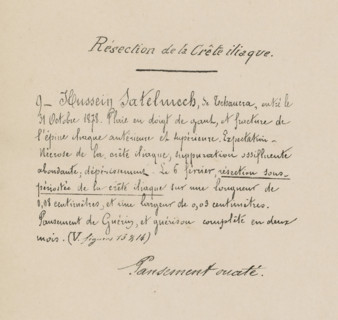 Résection de la Crête iliaque.
9_ Hussein Satelmech, de Erbauera, entré le
31 Octobre 1878. Plaie en doigt de gant, et fracture de
l'épine iliaque antérieure et supérieure. Expectation_
Nécrose de la crête iliaque, suppuration ossifluente
abondante, dépérissement_ Le 6 février, résection sous-
périostée de la crête iliaque sur une longueur de
0,08 centimètres, et une largeur de 0,03 centimètres.
Pansement de Guérin, et guérison complète en deux
mois. (V. figures 15 & 16)
Pansement ouaté.